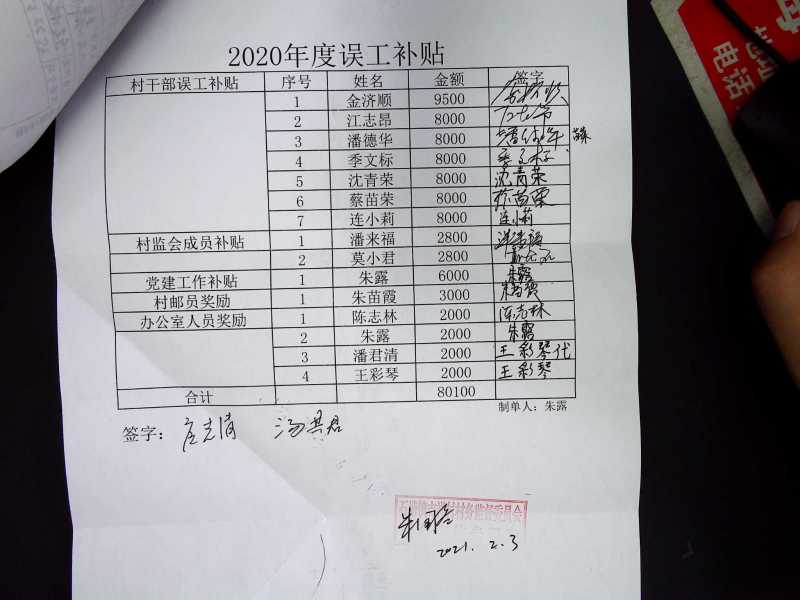 2020年度误工补贴
村干部误工补贴 序号 姓名 金额 签字
1 金济顺 9500
2 江志昂 8000
3 潘德华 8000
4 季文标 8000 季文标
5 沈青荣 8000 沈青荣
6 蔡苗荣 8000 蔡苗荣
7 连小莉 8000 连小莉
村监会成员补贴 1 潘来福 2800 潘来福
2 莫小君 2800
党建工作补贴 1 朱露 6000 朱露
村邮员奖励 1 朱苗霞 3000 朱苗霞
办公室人员奖励 1 陈志林 2000 陈志林
2 朱露 2000 朱露
3 潘君清 2000 王彩琴代
4 王彩琴 2000 王彩琴
合计 80100
制单人：朱露
签字：
2021.2.3
电话